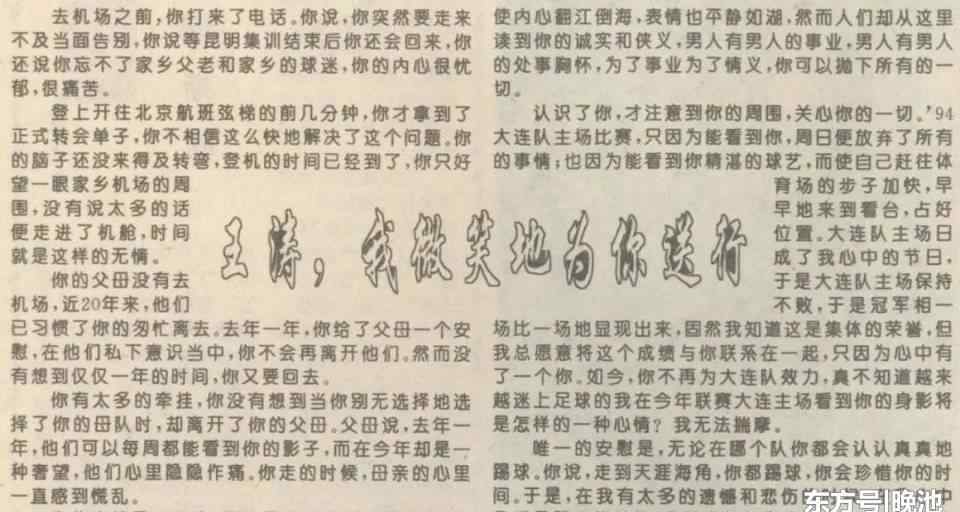 去机场之前,你打来了电话。你说,你突然要走来
不及当面告别,你说等昆明集训结束后你还会回来,你
还说你忘不了家乡父老和家乡的球迷,你的内心很忧
郁,很痛苦。
登上开往北京航班弦梯的前几分钟,你才拿到了
正式转会单子,你不相信这么快地解决了这个问题。你
的脑子还没来得及转弯,登机的时间已经到了,你只好
望一眼家乡机场的周
围,没有说太多的话
便走进了机舱,时间
就是这样的无情。
你的父母没有去
机场,近20年来,他们
已习惯了你的匆忙离去。去年一年,你给了父母一个安
慰,在他们私下意识当中,你不会再离开他们。然而没
有想到仅仅一年的时间,你又要回去。
你有太多的牵挂,你没有想到当你别无选择地选
择了你的母队时,却离开了你的父母。父母说,去年一
年,他们可以每周都能看到你的影子,而在今年却是一
种奢望,他们心里隐隐作痛。你走的时候,母亲的心里
一直感到慌乱。
王涛,我微笑地为你送行
使内心翻江倒海,表情也平静如湖,然而人们却从这里
读到你的诚实和侠义,男人有男人的事业,男人有男人
的处事胸怀,为了事业为了情义,你可以抛下所有的一
切。
认识了你,才注意到你的周围,关心你的一切。'94
大连队主场比赛,只因为能看到你,周日便放弃了所有
的事情;也因为能看到你精湛的球艺,而使自己赶往体
育场的步子加快,早
早地来到看台,占好
位置。大连队主场日
成了我心中的节日,
于是大连队主场保持
不败,于是冠军相一
场比一场地显现出来,固然我知道这是集体的荣誉,但
我总愿意将这个成绩与你联系在一起,只因为心中有
了一个你。如今,你不再为大连队效力,真不知道越来
越迷上足球的我在今年联赛大连主场看到你的身影将
是怎样的一种心情?我无法揣摩。
唯一的安慰是,无论在哪个队你都会认认真真地
踢球。你说,走到天涯海角,你都踢球,你会珍惜你的时
间。于是,在我有太多的遗憾和悲伤
东方号|晚池